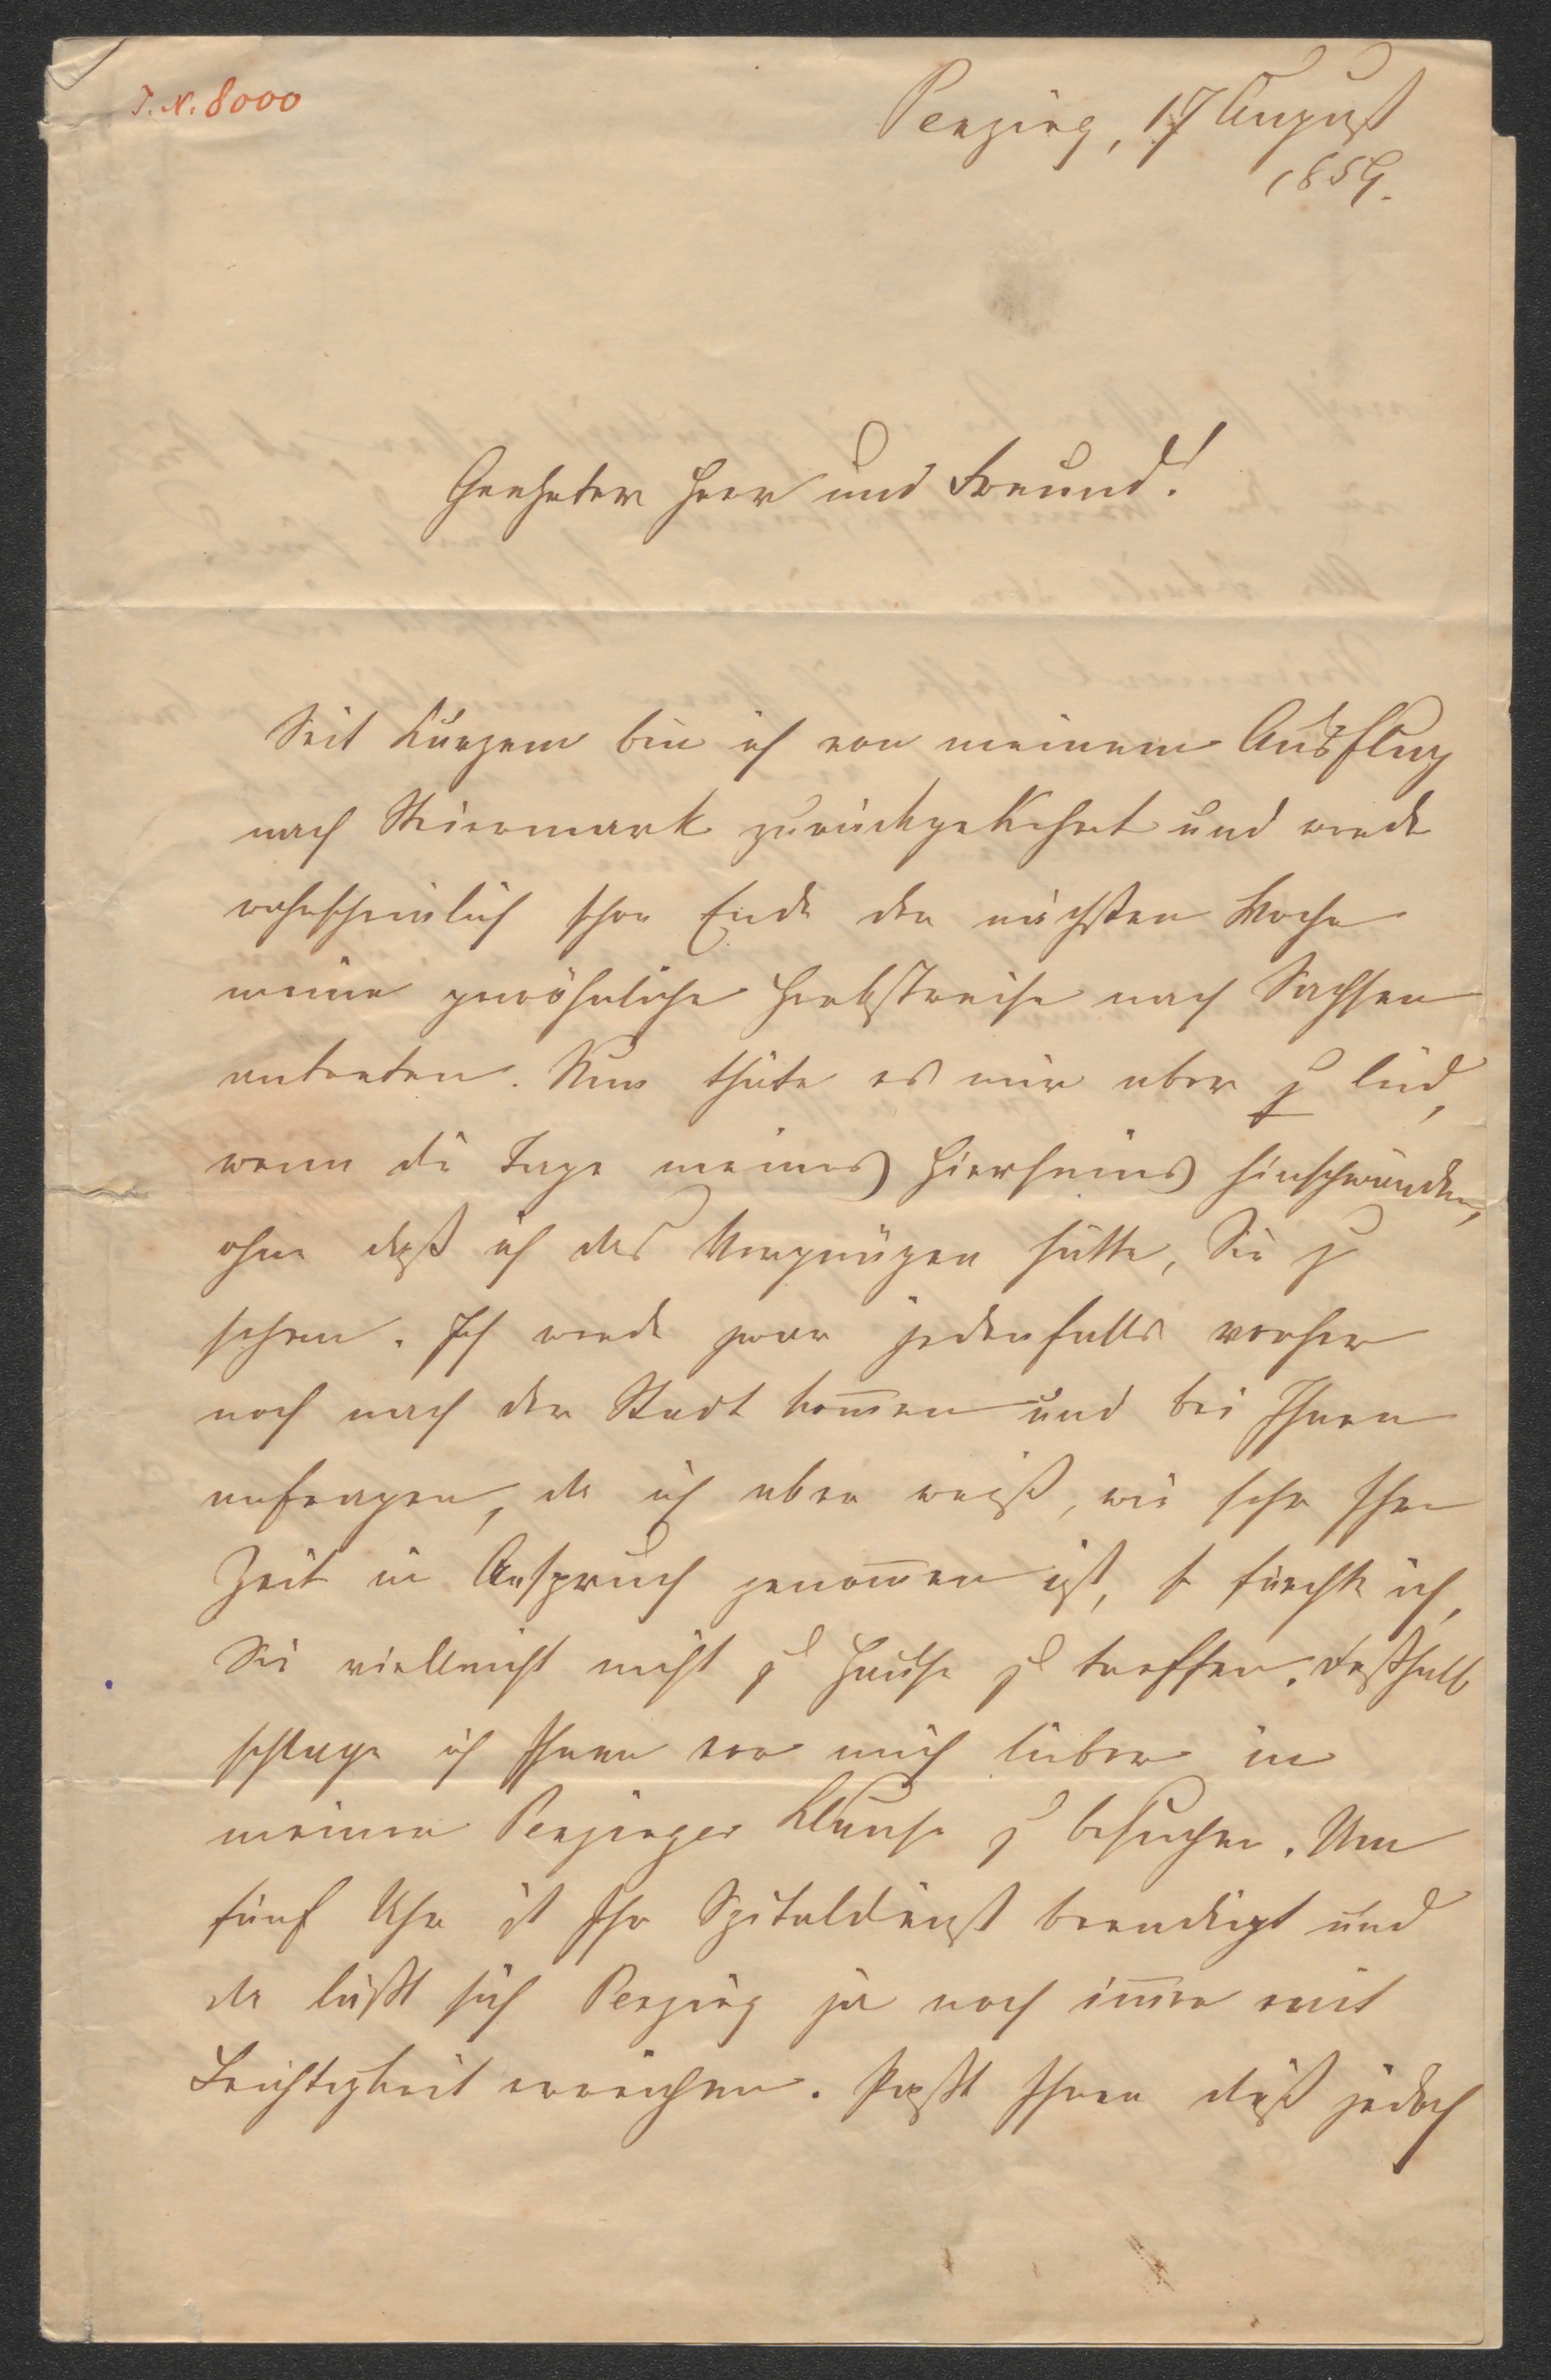 J. N. 8000
Penzing, 17 August
1859.
Geehrter Herr und Freund!
Seit Kurzem bin ich von meinem Ausflug
nach Steiermark zurückgekehrt und werde
wahrscheinlich schon Ende der nächsten Woche
meine gewöhnliche Herbstreise nach Sachsen
antreten. Nun thäte es mir aber zu leid,
wenn die Tage meines Hierseins hinschwänden,
ohne daß ich das Vergnügen hätte, Sie zu
sehen. Ich werde zwar jedenfalls vorher
noch nach der Stadt kom̅en und bei Ihnen
anfragen, da ich aber weiß, wie sehr Ihre
Zeit in Anspruch genom̅en ist, so fürchte ich,
Sie vielleicht nicht zu Hause zu treffen. Deßhalb
schlage ich Ihnen vor mich lieber in
meiner Penzinger Klause zu besuchen. Um
fünf Uhr ist Ihr Spitaldienst beendigt und
da läßt sich Penzing ja noch im̅er mit
Leichtigkeit erreichen. Paßt Ihnen dieß jedoch